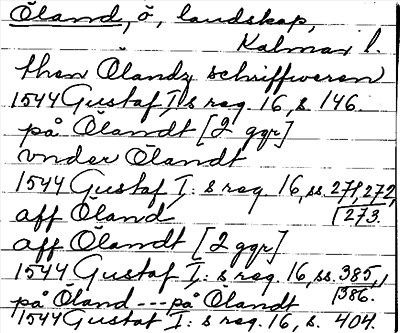 Öland, ö, landskap,
Kalmar l.
then Ölandz schriffweren
1544 Gustaf I:s reg. 16, s. 146.
på Ölandt [2 ggr]
vnder Ölandt
1544 Gustaf I:s reg. 16, ss. 271, 272,
aff Öland 273.
aff Ölandt [2 ggr]
1544 Gustaf I:s reg. 16, ss. 385,
386.
på Öland --- på Ölandt
1544 Gustaf I:s reg. 16, s. 404.